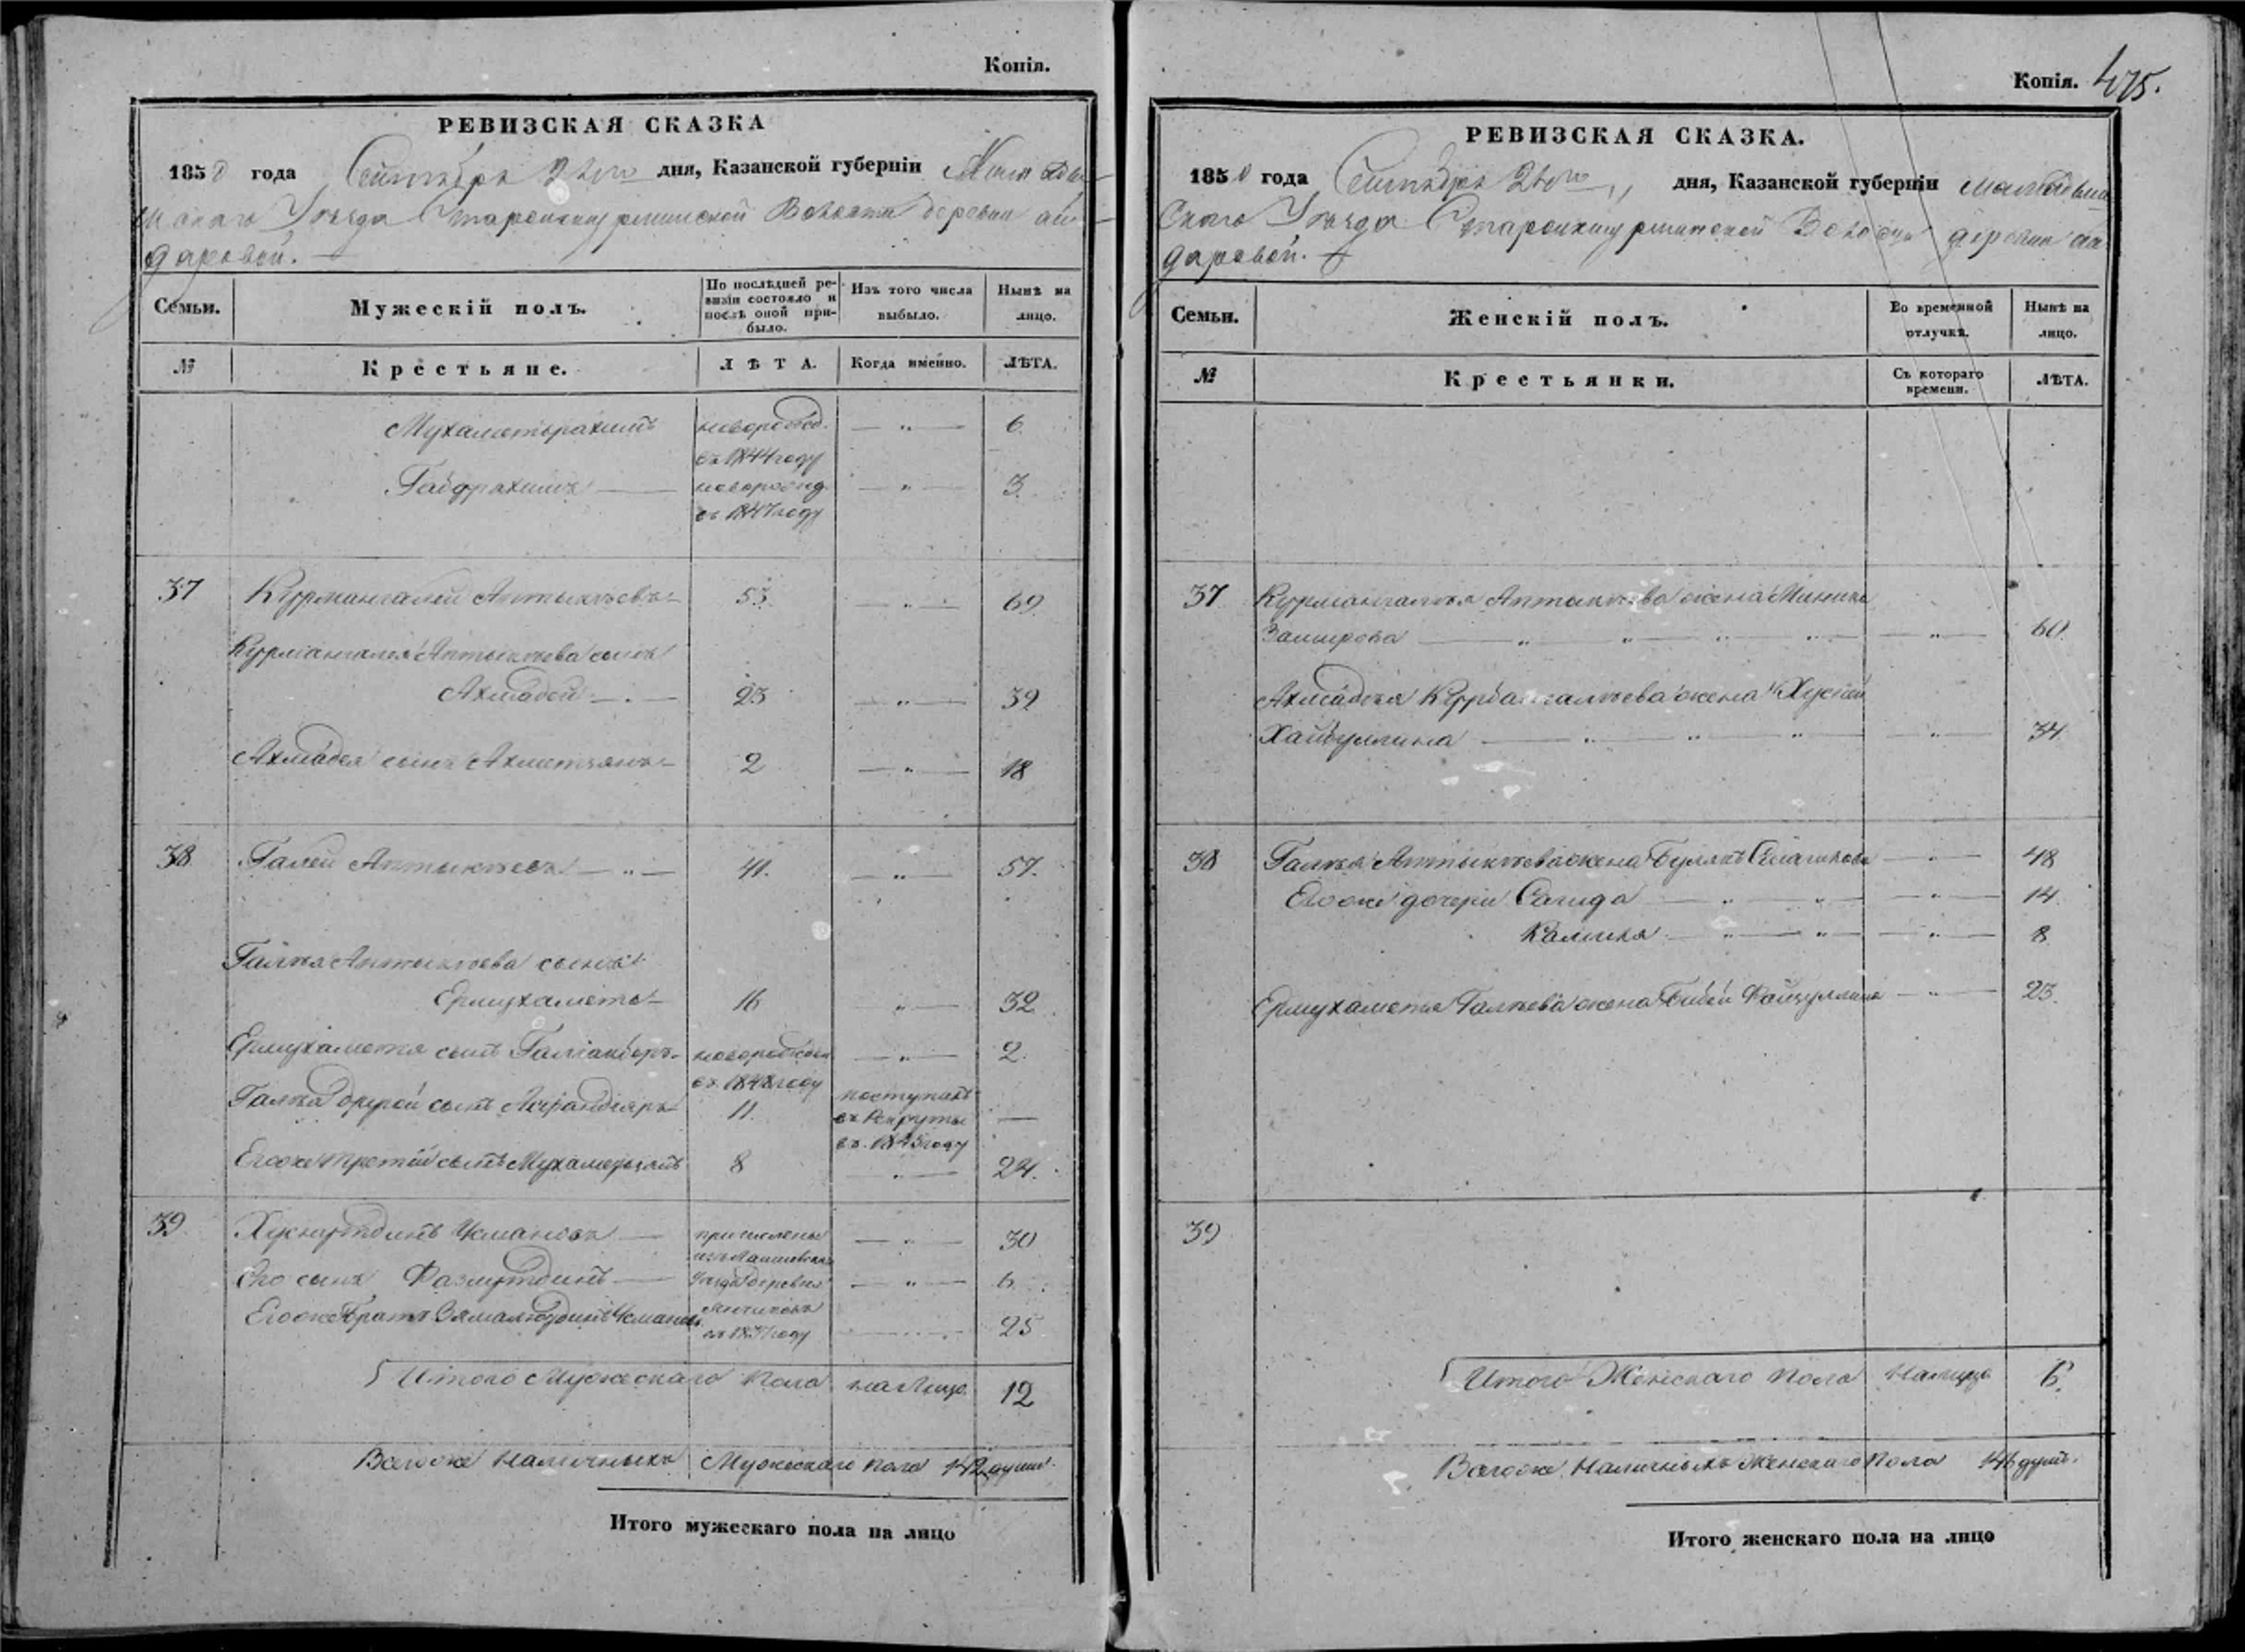 Копія.
РЕВИЗСКАЯ СКАЗКА
1850 года Сентября 2го дня, Казанской губерніи Мамадыш
скаго Уѣзда Волости деревни ай
даровой.
Семьи. Мужескій полъ. По послѣдней ревизіи состояло и послѣ оной прибыло. Изъ того числа выбыло. Нынѣ на лицо.
№ Крестьяне. ЛѢТА. Когда именно. ЛѢТА.
Мухаметьрахимъ новорожд. — „ — 6
въ 1844 году
Габдрахимъ — новорожд. — „ — 3
въ 1847 году
37 Курмангалей Аптыкѣевъ 53 — „ — 69
Курмангалея Аптыкѣева сынъ
Ахмадей — 23 — „ — 39
Ахмадея сынъ Ахметзянъ 2 — „ — 18
38 Галей Аптыкѣевъ — „ — 41. — „ — 57.
Галѣя Аптыкѣева сынъ
Ермухаметъ 16 „ — 32
Ермухаметя сынъ новорожден — „ — 2
въ 1848 году
Галѣя другой сынъ 11. поступилъ —
въ Рекруты
въ 1845 году
Егоже третій сынъ Мухаметзянъ 8 — „ — 24.
39 Хуснутдинъ Усмановъ — причислены — „ — 30
изъ Лаишевскаго
Его сынъ Фазлутдинъ — Уѣзда деревни — „ — 6
Егоже братъ Зямалютдинъ Усмановъ 25
году
Итого Мужескаго пола на лицо 12
Всегоже наличныхъ Мужескаго пола 142 души.
Итого мужескаго пола на лицо
Копія. 475.
РЕВИЗСКАЯ СКАЗКА.
1850 года Сентября 2го дня, Казанской губерніи Мамадыш
скаго Уѣзда Волости деревни ай
даровой.
Семьи. Женскій полъ. Во временной отлучкѣ. Нынѣ на лицо.
№ Крестьянки. Съ котораго времени. ЛѢТА.
37 Курмангалѣя Аптыкѣева жена
Замирова — „ — „ — „ — „ — 60.
Ахмадѣя Курбангалѣева жена
Хайбуллина — „ — „ — „ — „ — 34
38 Галѣя Аптыкѣева жена Булякъ — „ — 48
Егоже дочери Сагида — „ — „ — „ — 14.
Камиля — „ — „ — „ — 8
Ермухаметя Галѣева жена Бибей Файзуллина — „ — 23.
39
Итого Женскаго пола налицо 6.
Всегоже наличныхъ Женскаго пола 146 душъ.
Итого женскаго пола на лицо